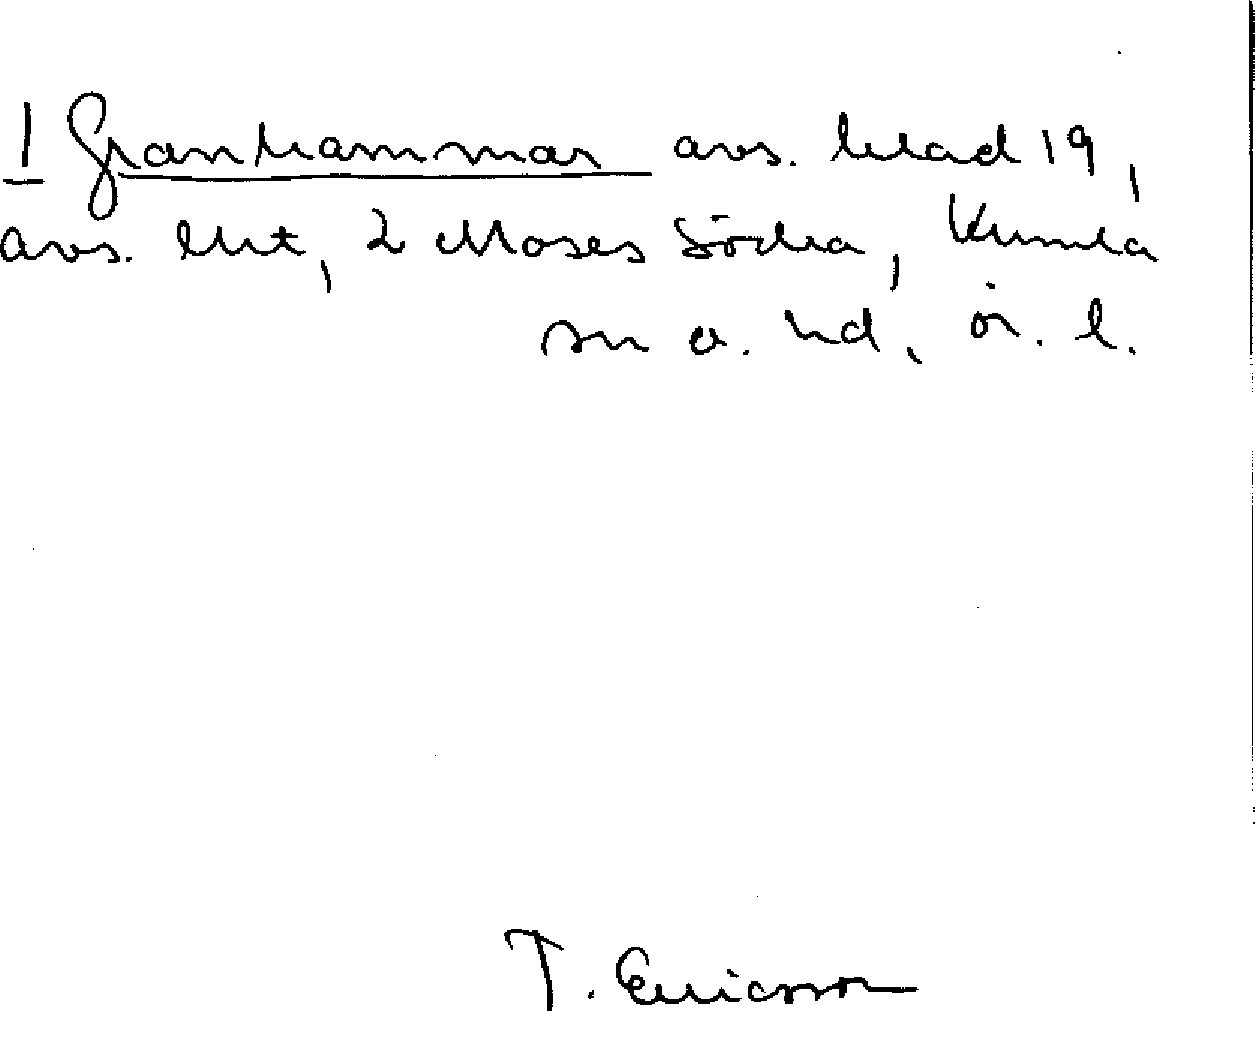 I Granhammar avs. blad 19,
avs. ent, 2 Moses Södra, Kumla
sn o. hd, ör. l.
T. Ericsson